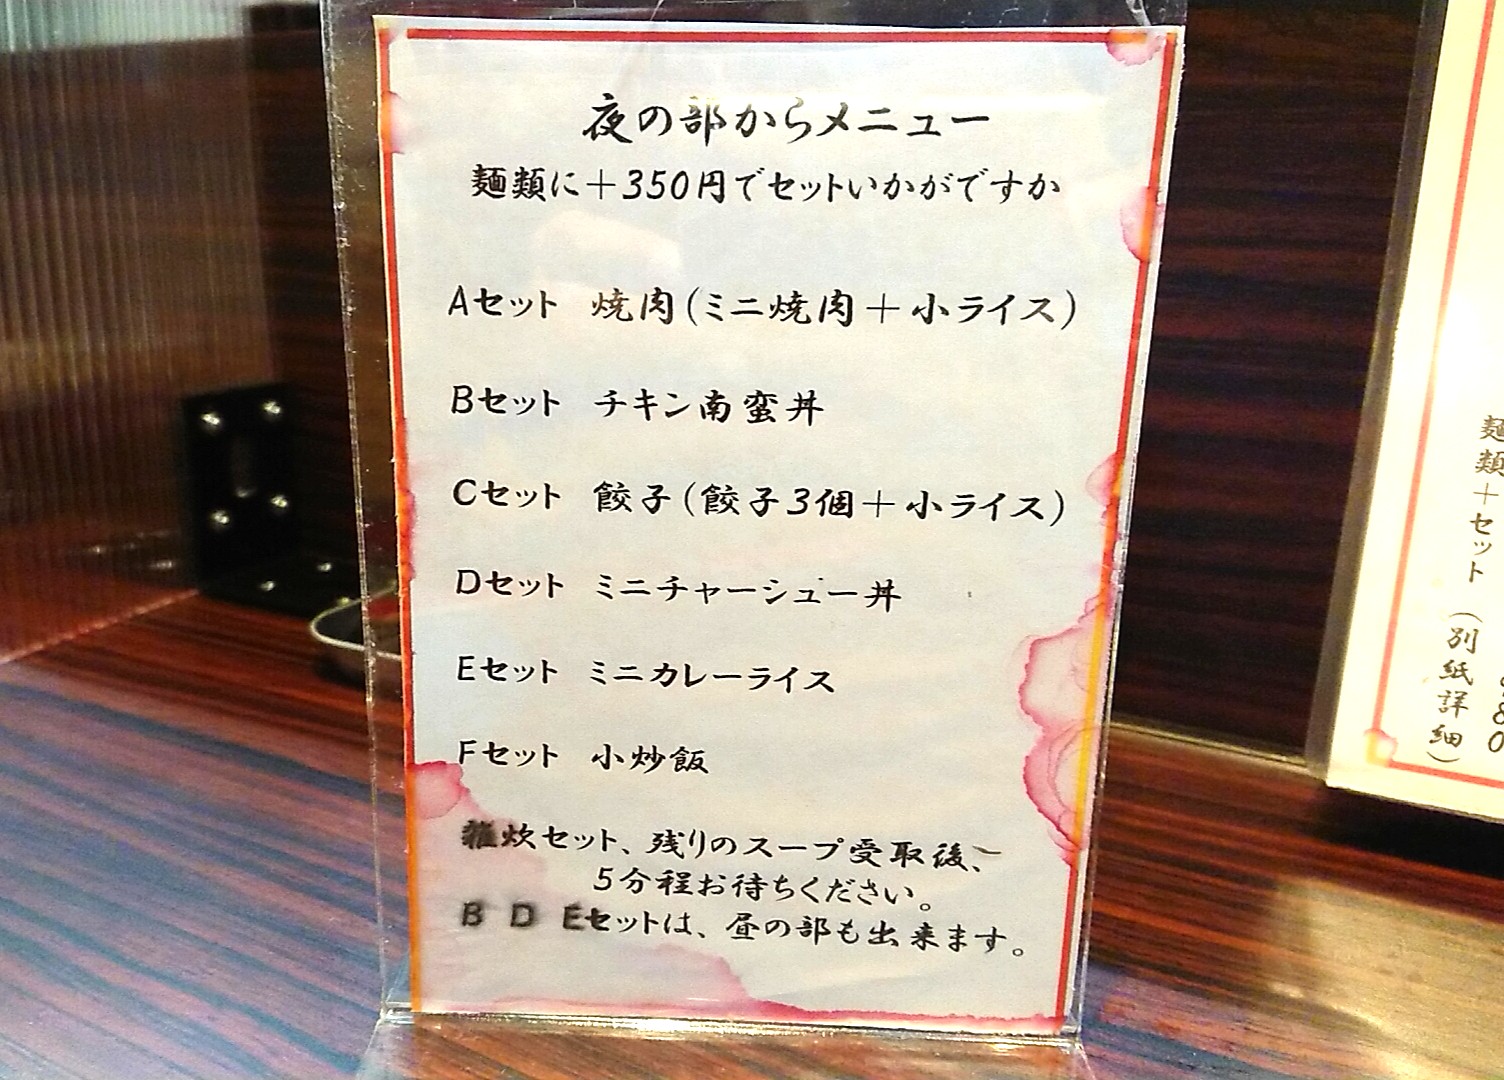 夜の部からメニュー
麺類に＋350円でセットいかがですか
Aセット 焼肉(ミニ焼肉＋小ライス)
Bセット チキン南蛮丼
Cセット 餃子(餃子3個＋小ライス)
Dセット ミニチャーシュー丼
Eセット ミニカレーライス
Fセット 小炒飯
雑炊セット、残りのスープ受取後、
5分程お待ちください。
B D Eセットは、昼の部も出来ます。
麺類＋セット(別紙詳細)